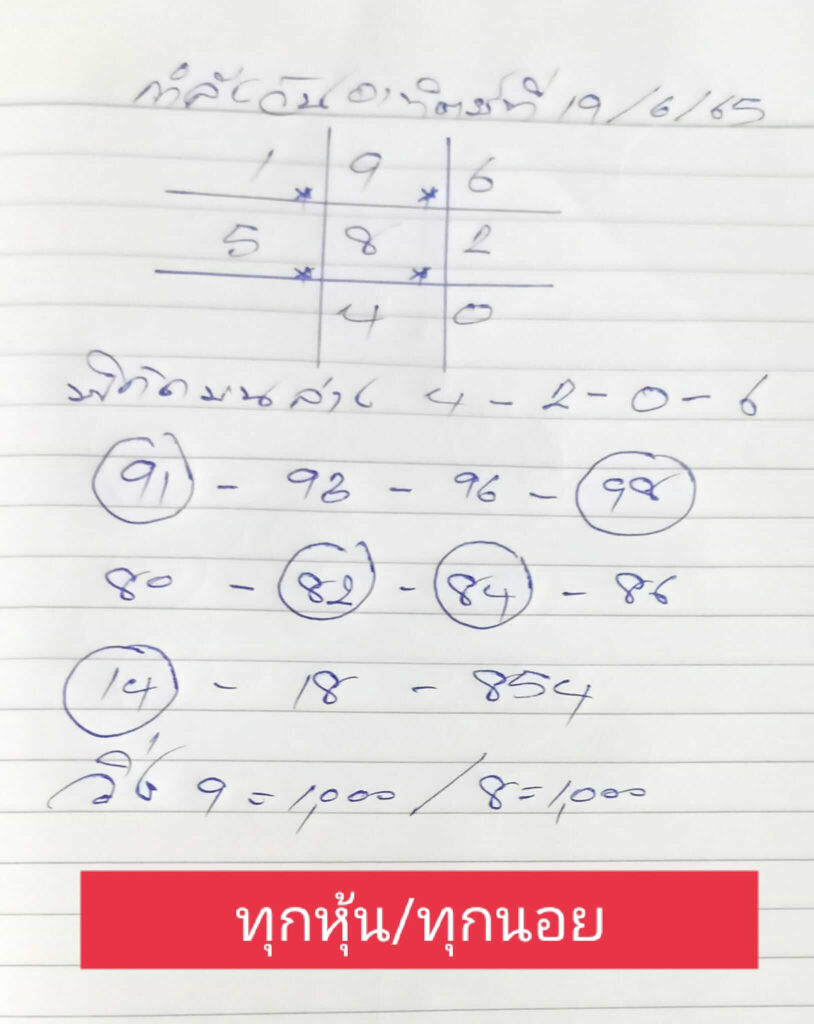 กำลังวันอาทิตย์ที่ 19/6/65
1 9 6
5 8 2
4 0
พิกัดบนล่าง 4-2-0-6
91 - 93 - 96 - 98
80 - 82 - 84 - 86
14 - 18 - 854
วิ่ง 9=1,000/8=1,000
ทุกหุ้น/ทุกนอย